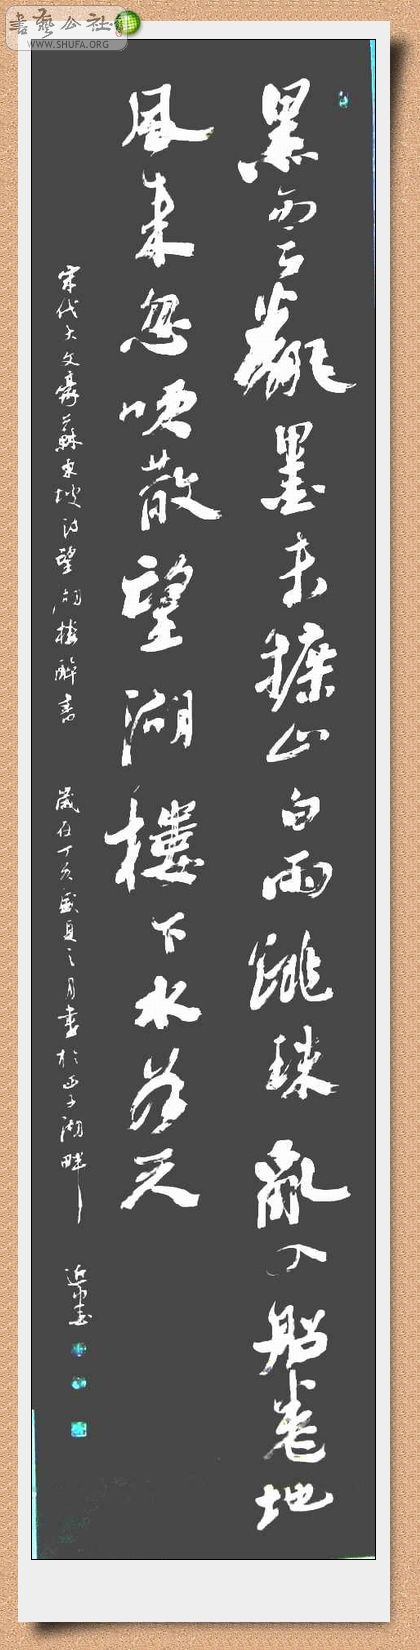 書藝公社
WWW.SHUFA.ORG
黑雲翻墨未遮山白雨跳珠亂入船卷地
風来忽吹散望湖樓下水如天
宋代大文豪蘇東坡詩望湖樓醉書 歲在丁亥盛夏之月書於湖畔
近書